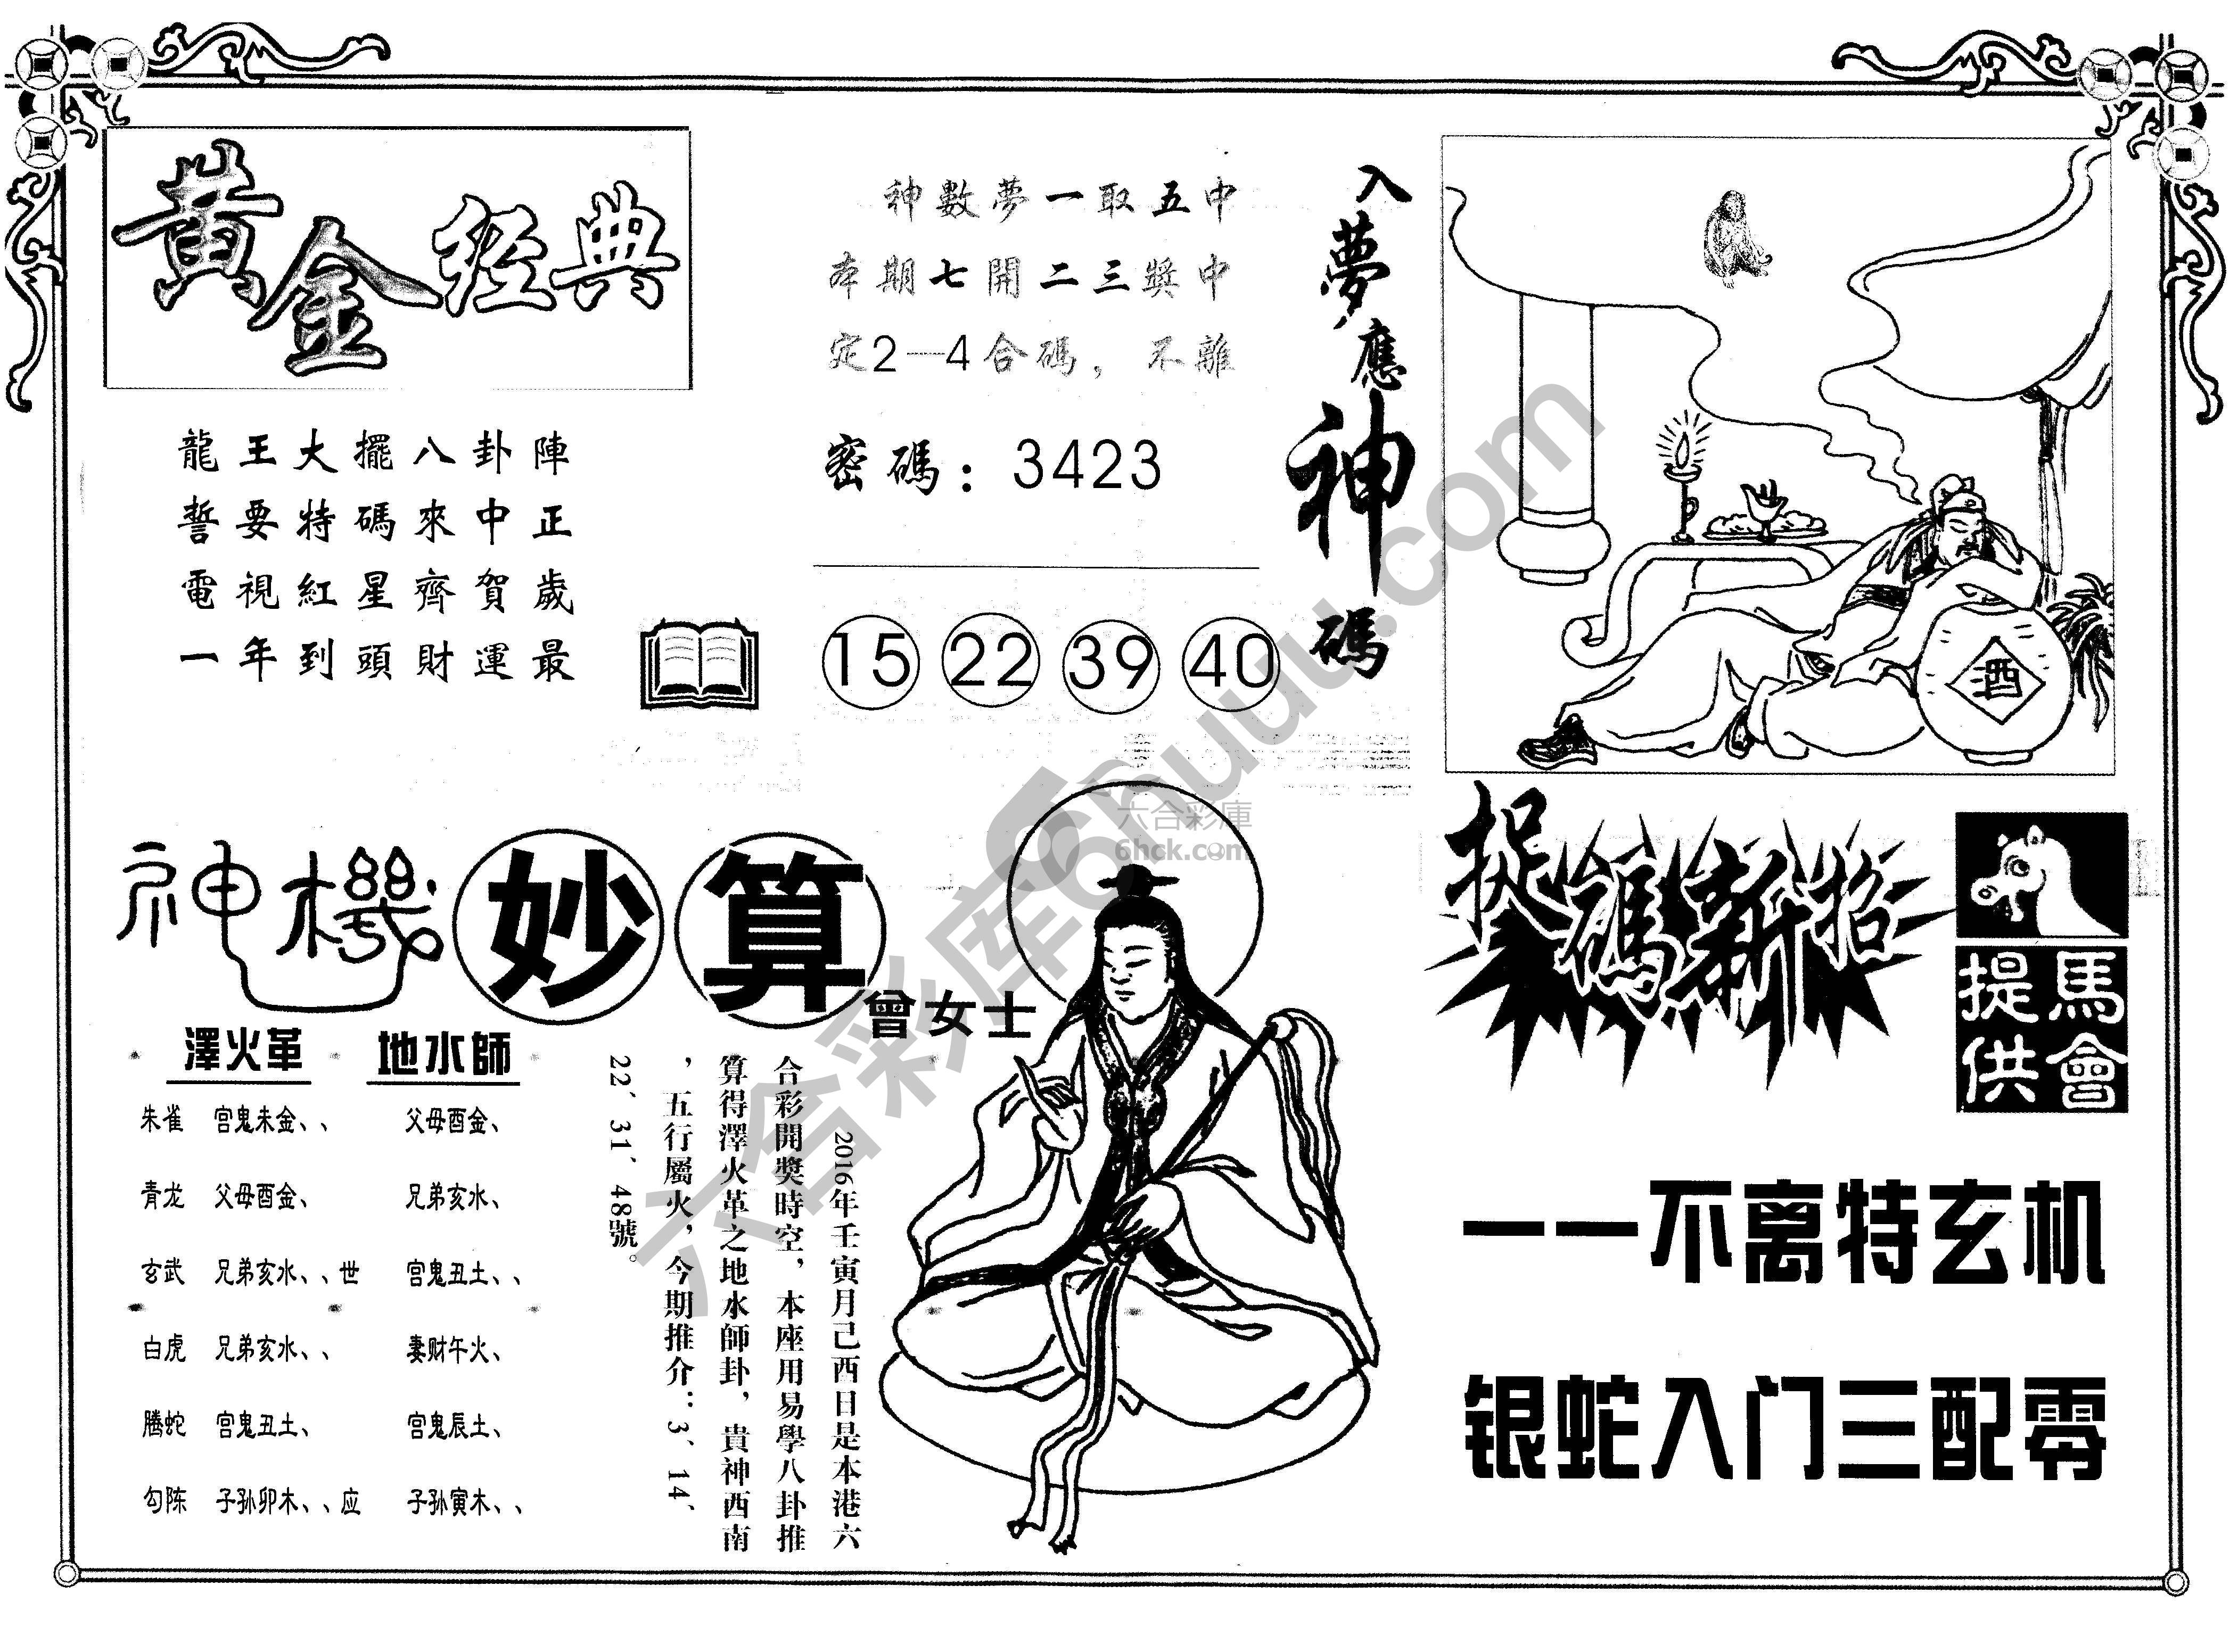 黄金经典
龍王大擺八卦陣
誓要特碼來中正
電視紅星齊賀歲
一年到頭財運最
神數夢一取五中
本期七開二三獎中
定2—4合碼，不離
密碼：3423
15 22 39 40
入夢應神碼
酒
神機妙算
曾女士
澤火革 地水師
朱雀 宫鬼未金、、 父母酉金、
青龙 父母酉金、 兄弟亥水、
玄武 兄弟亥水、、世 宫鬼丑土、、
白虎 兄弟亥水、、 妻财午火、
腾蛇 宫鬼丑土、 宫鬼辰土、
勾陈 子孙卯木、、应 子孙寅木、、
2016年壬寅月己西日是本港六
合彩開獎時空，本座用易學八卦推
算得澤火革之地水師卦，貴神西南
，五行屬火，今期推介：3、14、
22、31、48號。
捉碼新招
馬會
提供
一一不离特玄机
银蛇入门三配零
六合彩库6huuu.com
六合彩庫
6hck.com